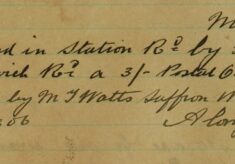 M
d in Station Rd by
with Rt a 3/- Postal O
by M J Watts Saffron W
06
Alon